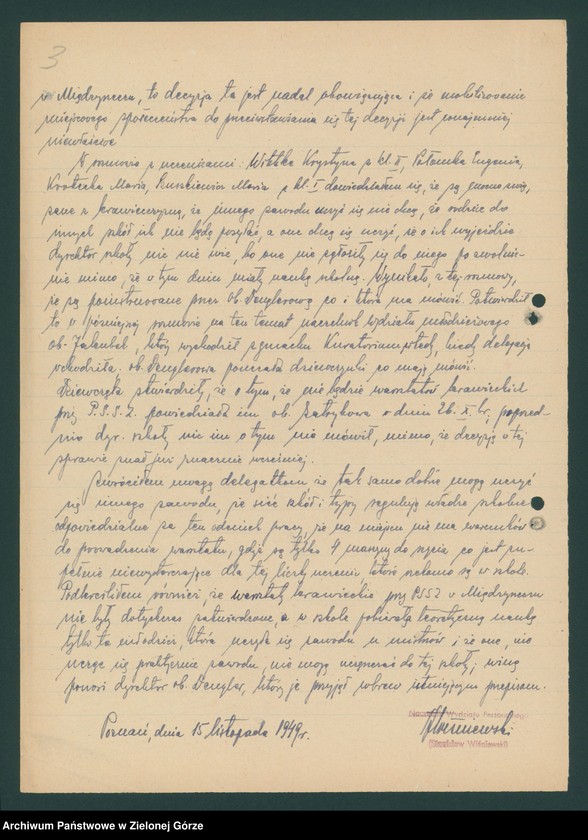 3
w Międzyrzeczu, to decyzja ta jest nadal obowiązująca i że mobilizowanie
miejscowego społeczeństwa do przeciwstawiania się tej decyzji jest conajmniej
niewłaściwe
W rozmowie z uczenicami: Wittke Krystyna z kl. II, Eugenia,
Maria, Maria z kl. I dowiedziałem się, że są
zane z krawiecczyzną, że innego zawodu uczyć się nie chcą, że rodzice do
innych szkół ich nie będą posyłać, a one chcą się uczyć, że o ich wyjeździe
dyrektor szkoły nic nie wie, bo one nie zgłosiły się do niego po zwolnie-
nie mimo, że w tym dniu miały naukę szkolną. Wynikało, z tej rozmowy,
że są poinstruowane przez ob. Denglerową co i która ma mówić. Potwierdził
to w późniejszej rozmowie na ten temat naczelnik wydziału młodzieżowego
ob. który wychodził z gmachu Kuratorium wtedy, kiedy delegacja
wchodziła. ob. Denglerowa pouczała dziewczynki co mają mówić.
Dziewczęta stwierdziły, że o tym, że nie będzie warsztatów krawieckich
przy P.S.S.Z. powiedziała im ob. w dniu 26. X. br., poprzed-
nio dyr. szkoły nic im o tym nie mówił, mimo, że decyzję w tej
sprawie znał już znacznie wcześniej.
Zwróciłem uwagę delegatkom że tak samo dobrze mogą uczyć
się innego zawodu, że sieć szkół i typy regulują władze szkolne
odpowiedzialne za ten odcinek pracy, że na miejscu nie ma warunków
do prowadzenia warsztatu, gdyż są tylko 4 maszyny do szycia co jest zu-
pełnie niewystarczające dla tej liczby uczenic, które rzekomo są w szkole.
Podkreśliłem również, że warsztaty krawieckie przy PSSZ w Międzyrzeczu
nie były dotychczas zatwierdzone, a w szkole pobierała teoretyczną naukę
tylko ta młodzież, która uczyła się zawodu u mistrzów i że one, nie
ucząc się praktycznie zawodu, nie mogą uczęszczać do tej szkoły, winę
ponosi dyrektor ob. Dengler, który je przyjął wbrew istniejącym przepisom.
Poznań, dnia 15 listopada 1949 r.
Archiwum Państwowe w Zielonej Górze